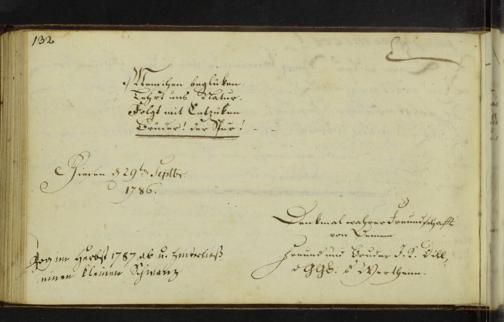 132
Menschen beglüken
Lehrt uns Natur.
Folgt mit Entzüken
Brüder! der Spur!
Giesen d 29ten Septbr
1786.
Denkmal wahrer Freundschafft
von Deinem
Freund und Bruder J. K. Dill,
d G G b: a Wertheim.
Zog im Herbst 1787 ab u. hinterließ
einen kleinen Schwanz